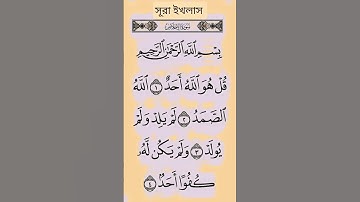 সূরা ইখলাস
بِسْمِ اللَّهِ الرَّحْمَٰنِ الرَّحِيمِ
قُلْ هُوَ اللَّهُ أَحَدٌ ١ اللَّهُ
الصَّمَدُ ٢ لَمْ يَلِدْ وَلَمْ
يُولَدْ ٣ وَلَمْ يَكُن لَّهُۥ
كُفُوًا أَحَدٌۢ ٤